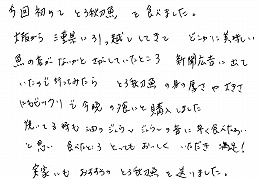 今回初めて とろ秋刀魚 を食べました。
大阪から三重県に引っ越してきて どこかに美味しい
魚の店がないかとさがしていたところ 新聞広告に出て
いたので行ってみたら とろ秋刀魚の身の厚さや大きさ
にもビックリで今晩の食いと購入しました
焼いてる時も油のジュウジュウの音に早く食べたい
と思い 食べたところとってもおいしく いただき 満足!
実家にもおすすめのとろ秋刀魚を送りました。